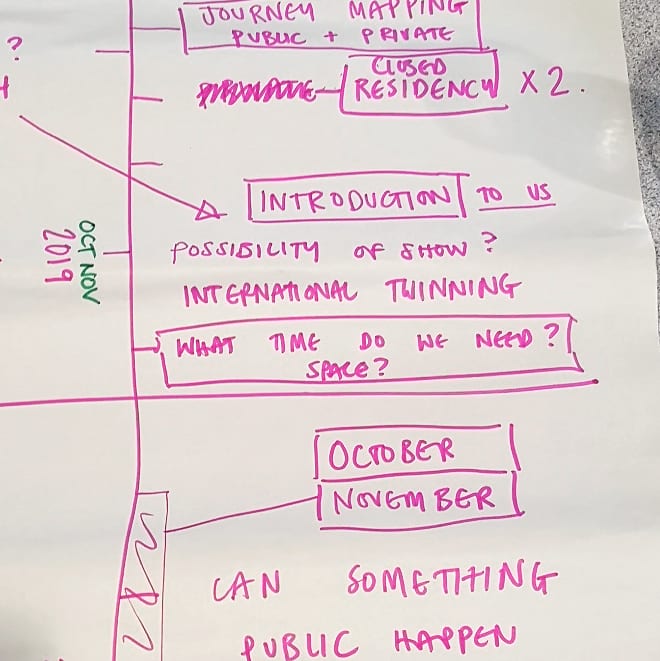 JOURNEY MAPPING
PUBLIC + PRIVATE
?
CLOSED
RESIDENCY X 2.
INTRODUCTION TO US
POSSIBILITY OF SHOW?
INTERNATIONAL TWINNING
OCT NOV
2019
WHAT TIME DO WE NEED?
SPACE?
OCTOBER
NOVEMBER
CAN SOMETHING
PUBLIC HAPPEN